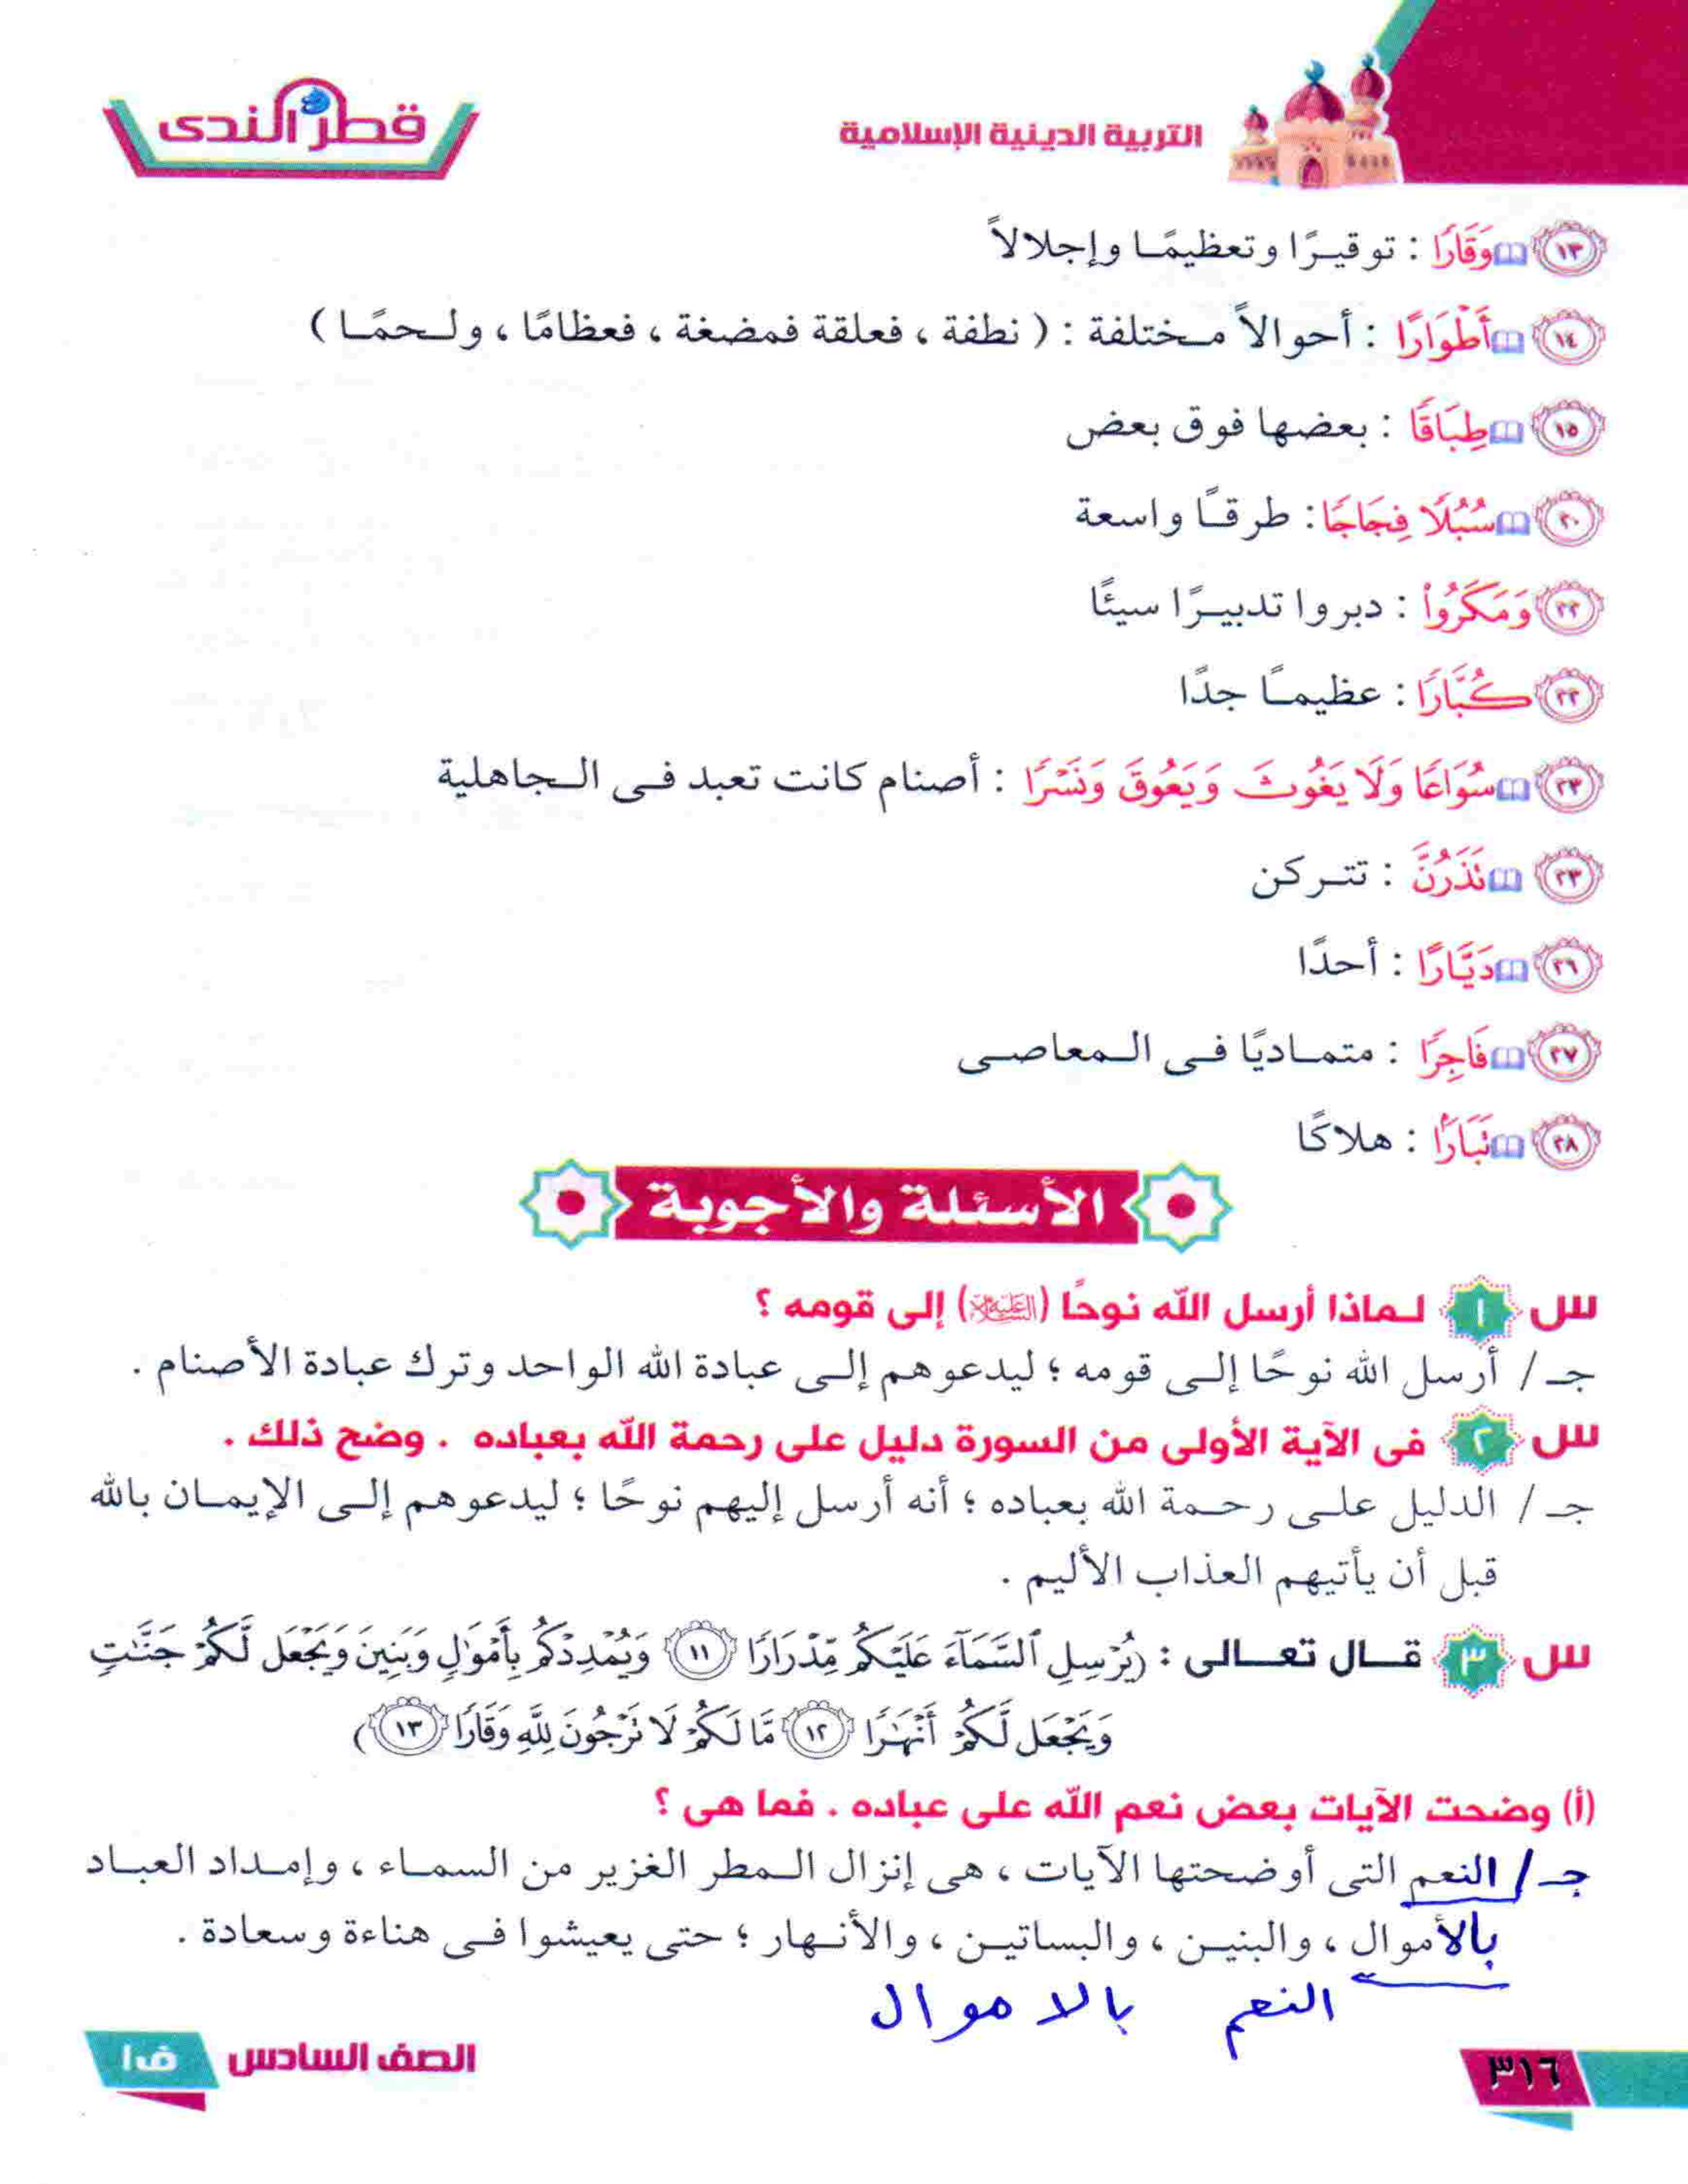 قطر الندى
التربية الدينية الإسلامية
١٣ وَقَارًا : توقيرًا وتعظيمًا وإجلالاً
١٤ أَطْوَارًا : أحوالاً مختلفة : ( نطفة ، فعلقة فمضغة ، فعظامًا ، ولحمًا )
١٥ طِبَاقًا : بعضها فوق بعض
٢٠ سُبُلًا فِجَاجًا : طرقًا واسعة
٢٢ وَمَكَرُواْ : دبروا تدبيرًا سيئًا
٢٢ كُبَّارًا : عظيمًا جدًا
٢٣ سُوَاعًا وَلَا يَغُوثَ وَيَعُوقَ وَنَسْرًا : أصنام كانت تعبد فى الجاهلية
٢٣ نَذَرُنَّ : تتركن
٢٦ دَيَّارًا : أحدًا
٢٧ فَاجِرًا : متماديًا فى المعاصى
٢٨ تَبَارًا : هلاكًا
الأسئلة والأجوبة
س ١ لماذا أرسل الله نوحًا (عليه السلام) إلى قومه ؟
جـ / أرسل الله نوحًا إلى قومه ؛ ليدعوهم إلى عبادة الله الواحد وترك عبادة الأصنام .
س ٢ فى الآية الأولى من السورة دليل على رحمة الله بعباده . وضح ذلك .
جـ / الدليل على رحمة الله بعباده ؛ أنه أرسل إليهم نوحًا ؛ ليدعوهم إلى الإيمان بالله
قبل أن يأتيهم العذاب الأليم .
س ٣ قال تعالى : (يُرْسِلِ ٱلسَّمَآءَ عَلَيْكُم مِّدْرَارًا ١١ وَيُمْدِدْكُم بِأَمْوَٰلٍ وَبَنِينَ وَيَجْعَل لَّكُمْ جَنَّٰتٍ
وَيَجْعَل لَّكُمْ أَنْهَٰرًا ١٢ مَّا لَكُمْ لَا تَرْجُونَ لِلَّهِ وَقَارًا ١٣)
(أ) وضحت الآيات بعض نعم الله على عباده . فما هى ؟
جـ / النعم التى أوضحتها الآيات ، هى إنزال المطر الغزير من السماء ، وإمداد العباد
بالأموال ، والبنين ، والبساتين ، والأنهار ؛ حتى يعيشوا فى هناءة وسعادة .
النعم بالاموال
٣١٦
الصف السادس
ف١